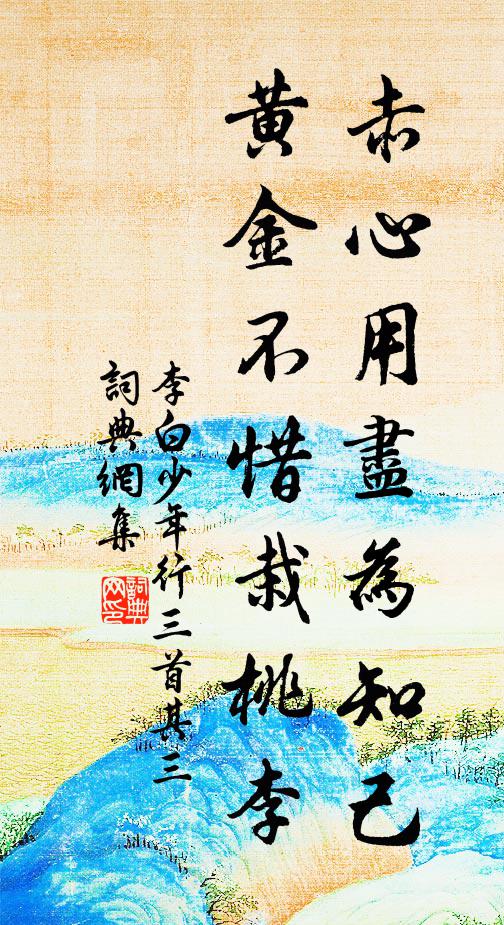 赤心用盡為知己
黃金不惜栽桃李
李白少年行三首其三
詞典網集
詞典